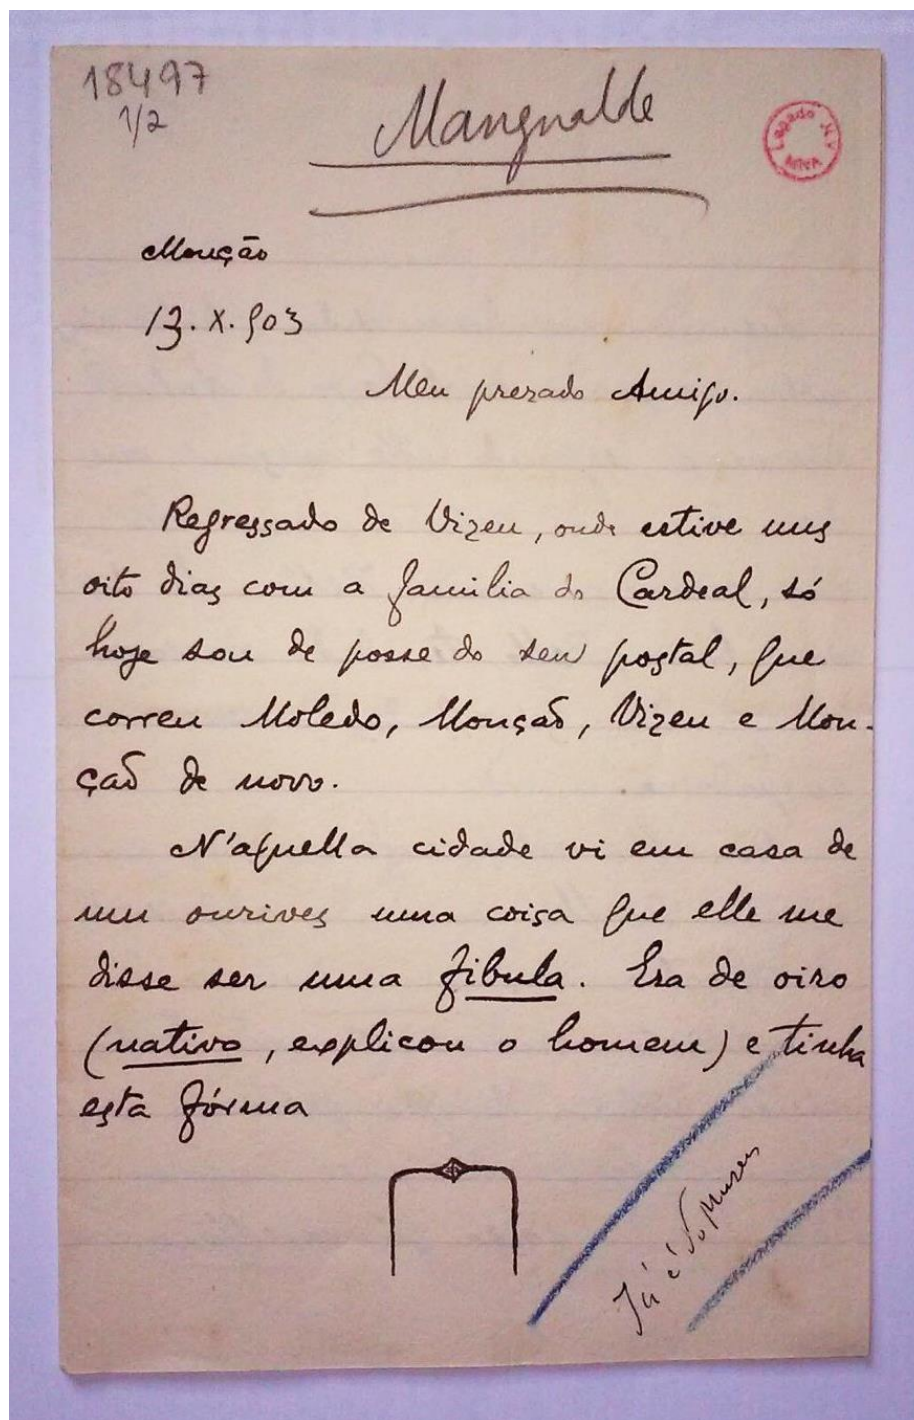 18497
1/2
Mangualde
Legado JLV
MNA
Monção
13.X.903
Meu prezado Amigo.
Regressado de Vizeu, onde estive uns
oito dias com a familia do Cardeal, só
hoje sou de posse do seu postal, que
correu Moledo, Monção, Vizeu e Mon-
ção de novo.
N'aquella cidade vi em casa de
um ourives uma coisa que elle me
disse ser uma fibula. Era de oiro
(nativo, explicou o homem) e tinha
esta fórma
Já é do Museu